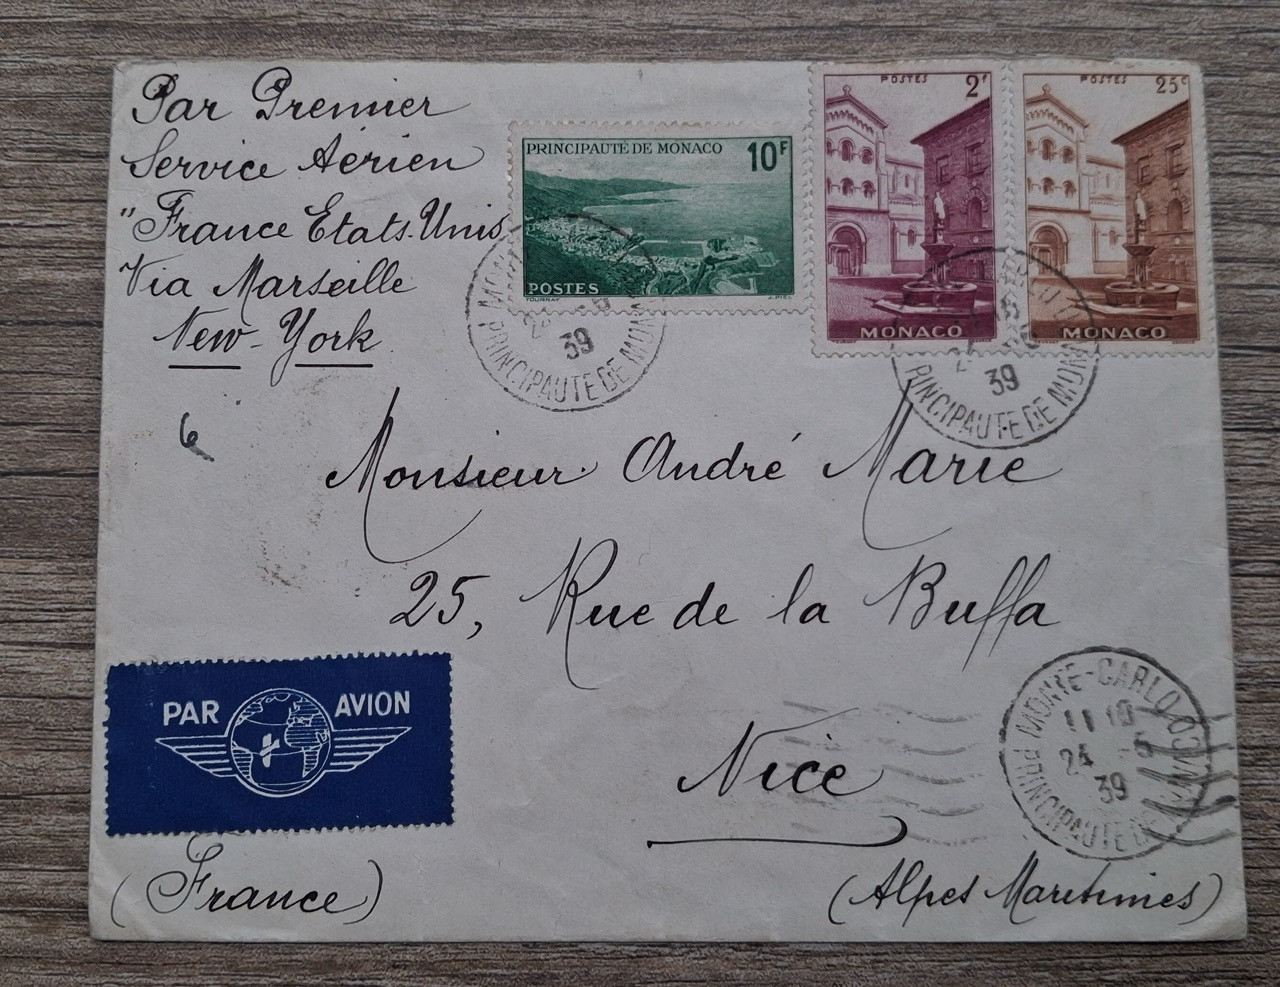 Par Premier
Service Aérien
"France Etats-Unis
Via Marseille
New-York
6
PRINCIPAUTÉ DE MONACO 10F
POSTES
TOURNAY
J. PIEL
POSTES 2F
MONACO
POSTES 25c
MONACO
24 -5
39
PRINCIPAUTE DE MON
24
39
PRINCIPAUTE DE MON
Monsieur André Marie
25, Rue de la Buffa
Nice
(Alpes Maritimes)
PAR AVION
(France)
MONTE-CARLO
11 10
24 -5
39
PRINCIPAUTE DE MONACO